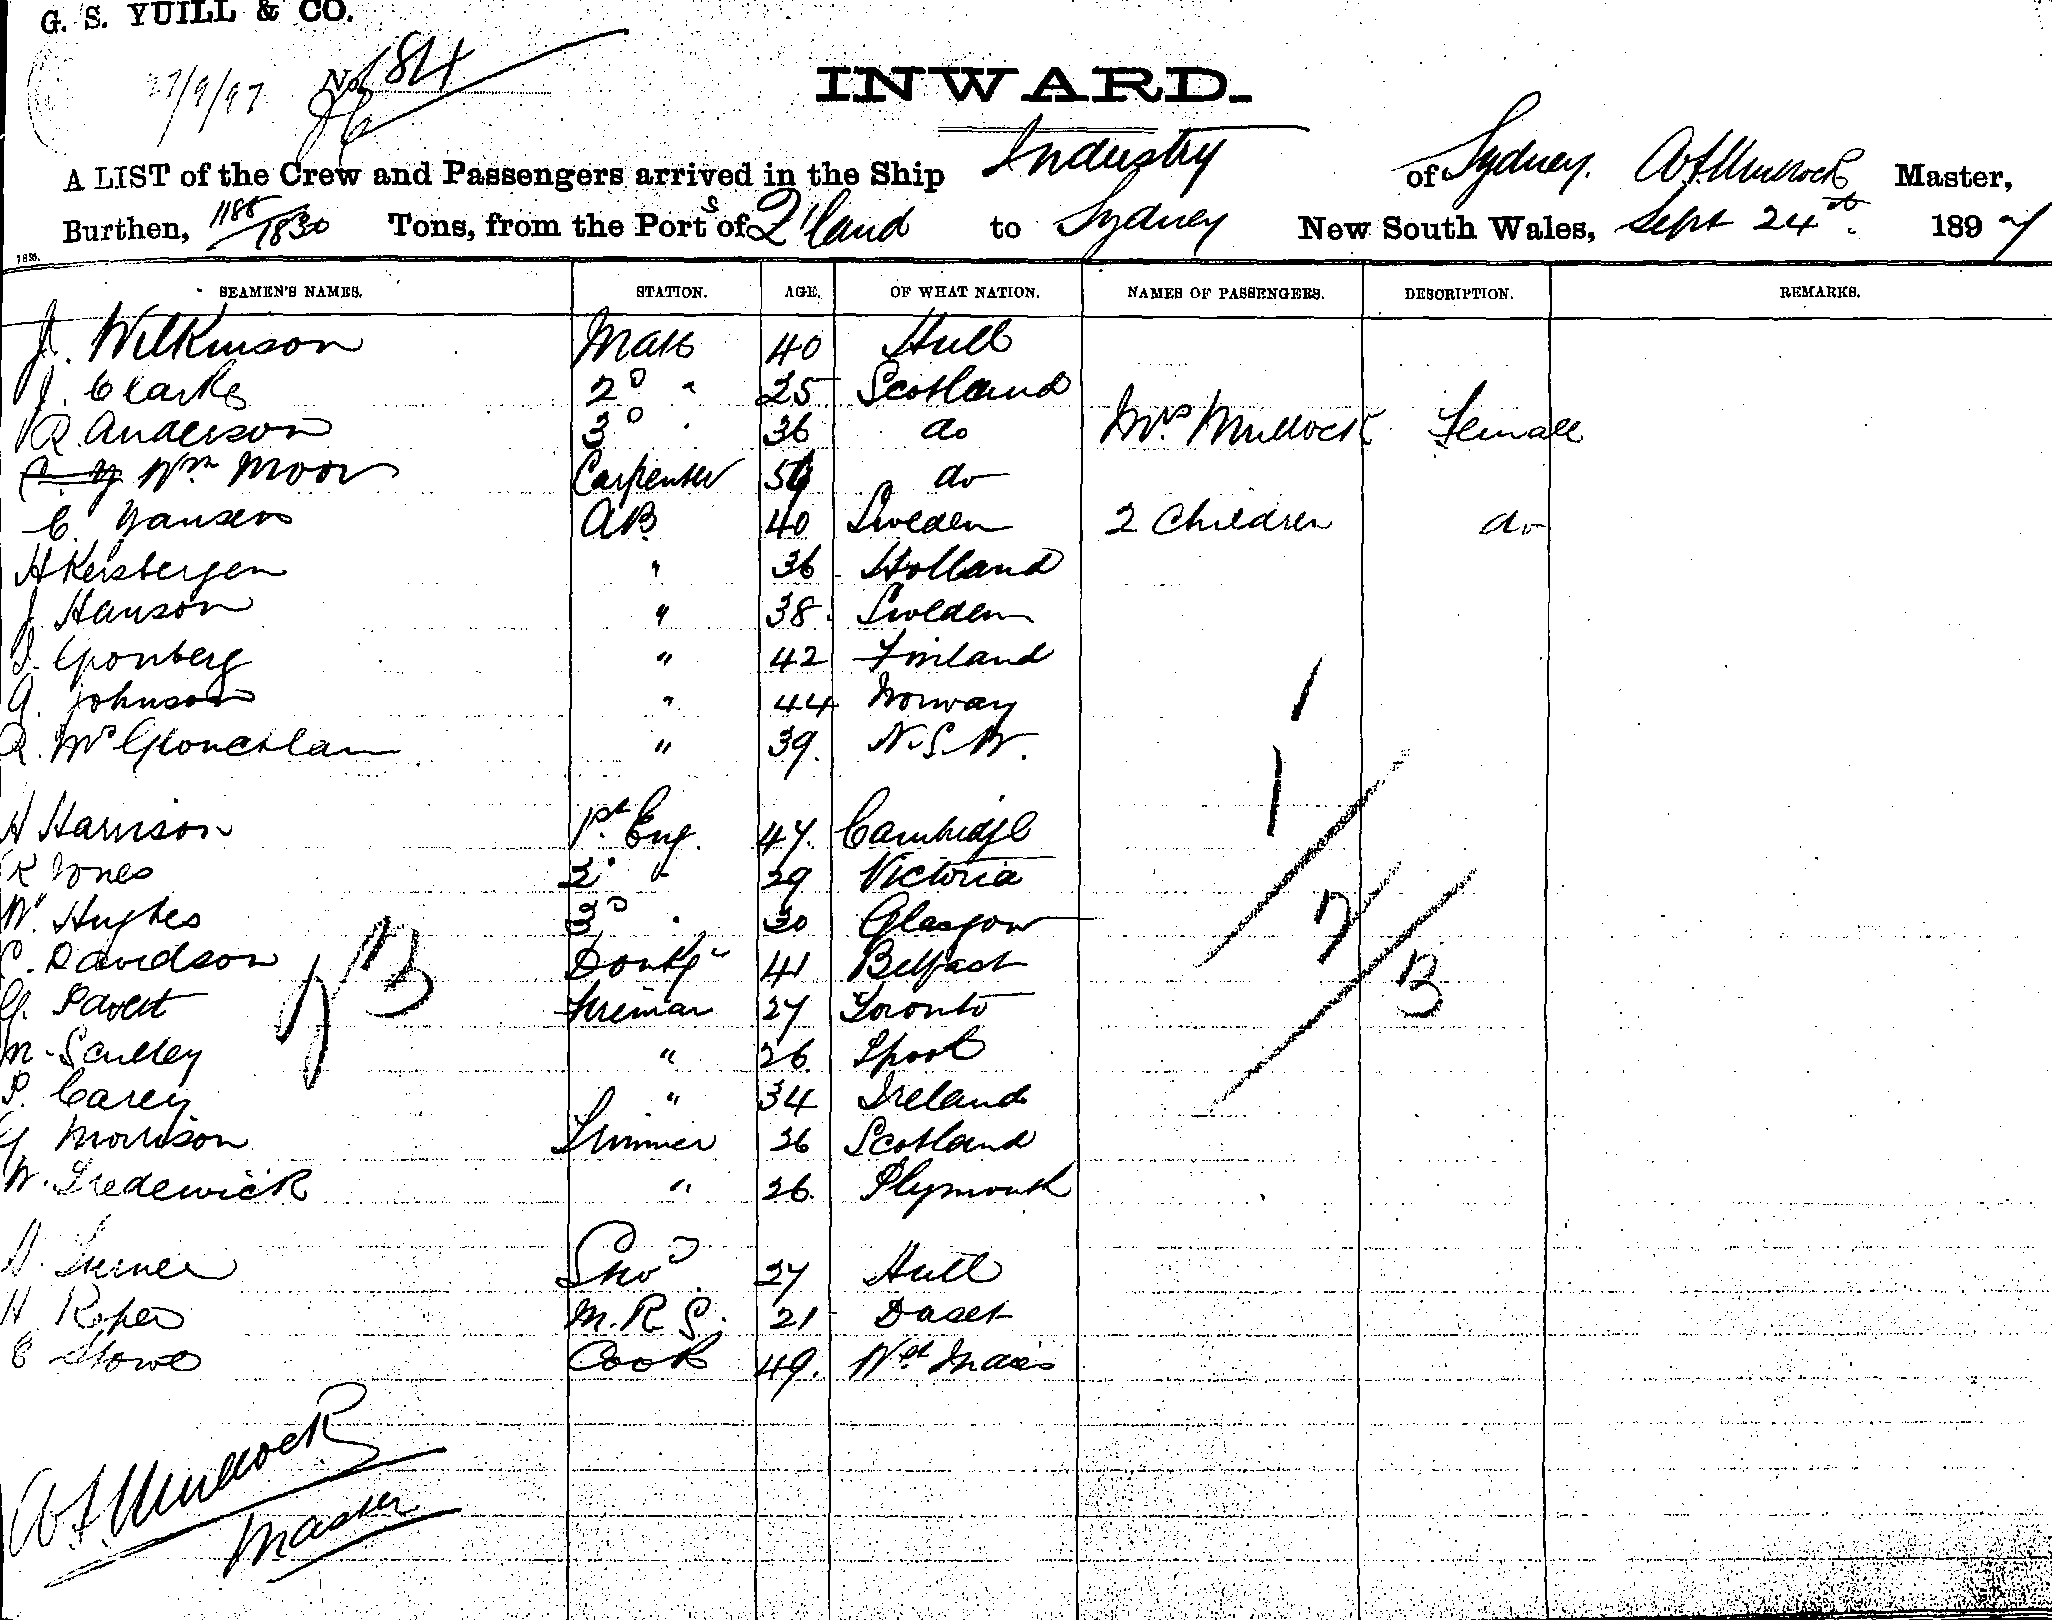 G. S. YUILL & CO.
27/9/97 No. 184
INWARD.
A LIST of the Crew and Passengers arrived in the Ship Industry of Sydney. W. F. Mullock Master,
Burthen, 1188/1830 Tons, from the Ports of Q'land to Sydney New South Wales, Sept 24th. 1897
SEAMEN'S NAMES. STATION. AGE. OF WHAT NATION. NAMES OF PASSENGERS. DESCRIPTION. REMARKS.
J. Wilkinson Mate 40 Hull
J. Clarke 2° " 25 Scotland
R Anderson 3° " 36 do Mrs. Mullock Female
Wm Moor Carpenter do
C. Jansen AB 40 Sweden 2 Children do
H Kersbergen " 36 Holland
J. Hanson " 38 Sweden
Gronberg " 42 Finland
A. Johnson " 44 Norway
" 39. N.S.W.
H Harrison 1st Eng. 47. Cambridge
R Jones 2° " 29 Victoria
W. Hughes 3° " 30 Glasgow
C. Davidson Donky 41 Belfast
Fireman 27 Toronto
M. Sculley " 26 Lpool
P. Carey " 34 Ireland
G Morrison Trimmer 26 Scotland
W. Tredewick " 26. Plymouth
H. Turner 27 Hull
H Roper M.R.S. 21 Daset
E Stowe Cook 49. Wst Indies
W. F. Mullock
Master